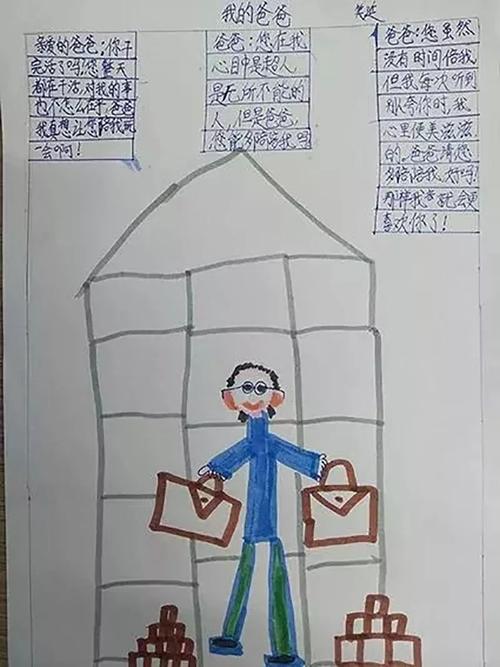 我的爸爸
亲爱的爸爸:你干
完活了吗?您整天
都在干活,对我的事
也不怎么在乎,爸爸
我真想让您陪我玩
一会啊!
爸爸:您在我
心目中是超人,
是无所不能的
人,但是爸爸,
您能多陪陪我吗
爸爸:您虽然
没有时间陪我
但我每次听到
别夸你时,我
心里便美滋滋
的。爸爸,请您
多陪陪我,好吗?
那样我就会更
喜欢你了!